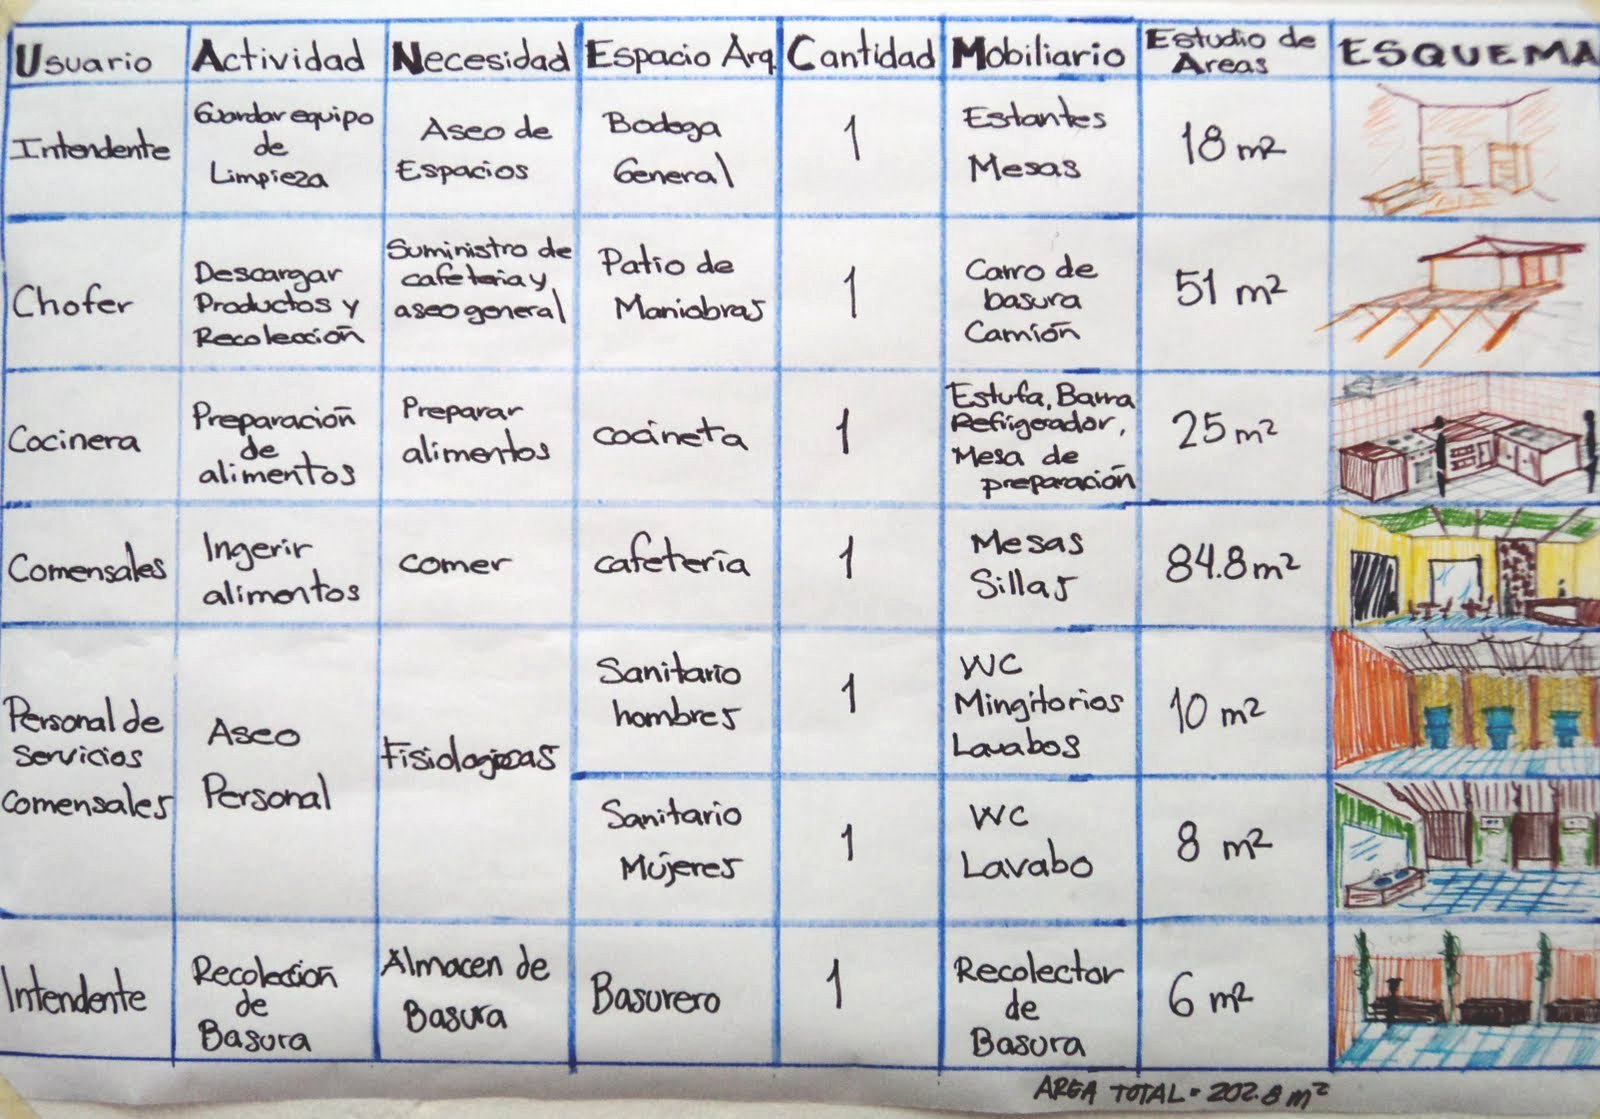 Usuario Actividad Necesidad Espacio Arq. Cantidad Mobiliario Estudio de Areas ESQUEMA
Intendente
Guardar equipo
de
Limpieza
Aseo de
Espacios
Bodega
General
1
Estantes
Mesas
18 m²
Chofer
Descargar
Productos y
Recolección
Suministro de
cafetería y
aseo general
Patio de
Maniobras
1
Carro de
basura
Camión
51 m²
Cocinera
Preparación
de
alimentos
Preparar
alimentos
cocineta
1
Estufa, Barra
Refrigerador,
Mesa de
preparación
25 m²
Comensales
Ingerir
alimentos
comer
cafetería
1
Mesas
Sillas
84.8 m²
Personal de
Servicios
comensales
Aseo
Personal
Fisiologicas
Sanitario
hombres
1
WC
Mingitorios
Lavabos
10 m²
Sanitario
Mujeres
1
WC
Lavabo
8 m²
Intendente
Recolección
de
Basura
Almacen de
Basura
Basurero
1
Recolector
de
Basura
6 m²
AREA TOTAL = 202.8 m²